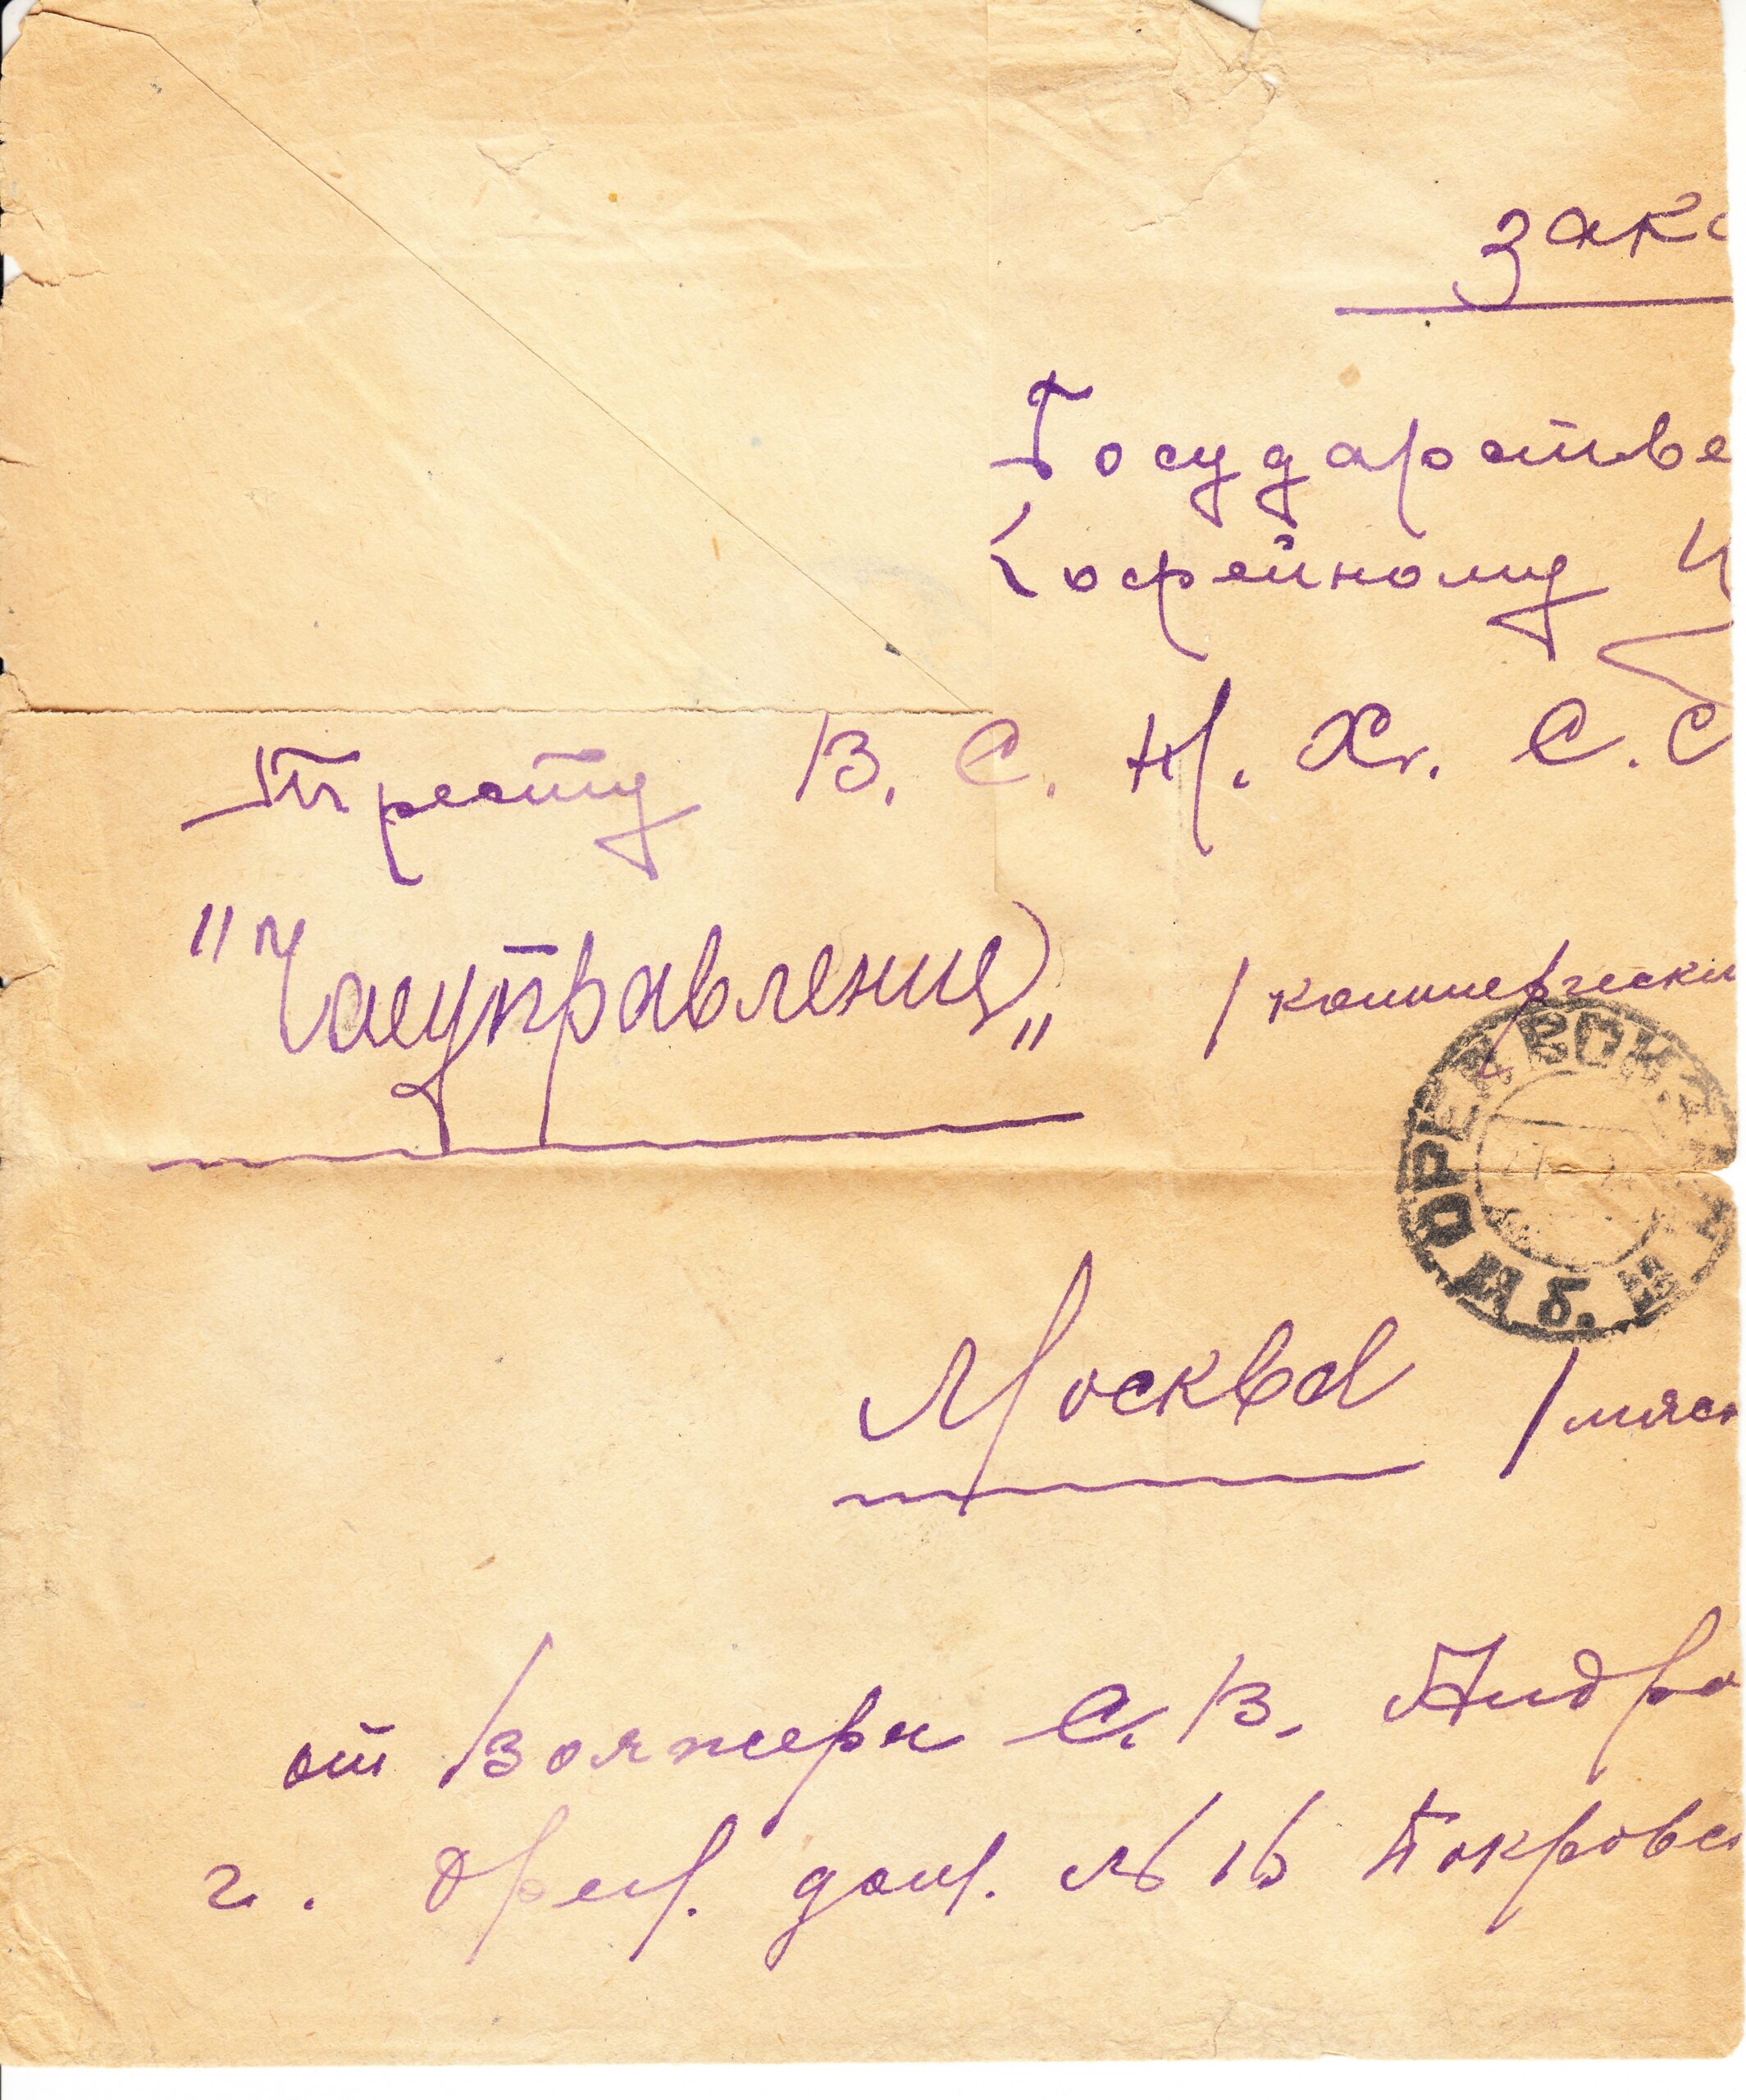 зака
Государстве
Кофейному и
Тресту В. С. Н. Х. С. С
"Чаеуправления"
/ коммерчески
ОРЕНБ
Москва / мясн
от Вояжера С. В. Андро
г. Орен. дом. № 16 Покровс